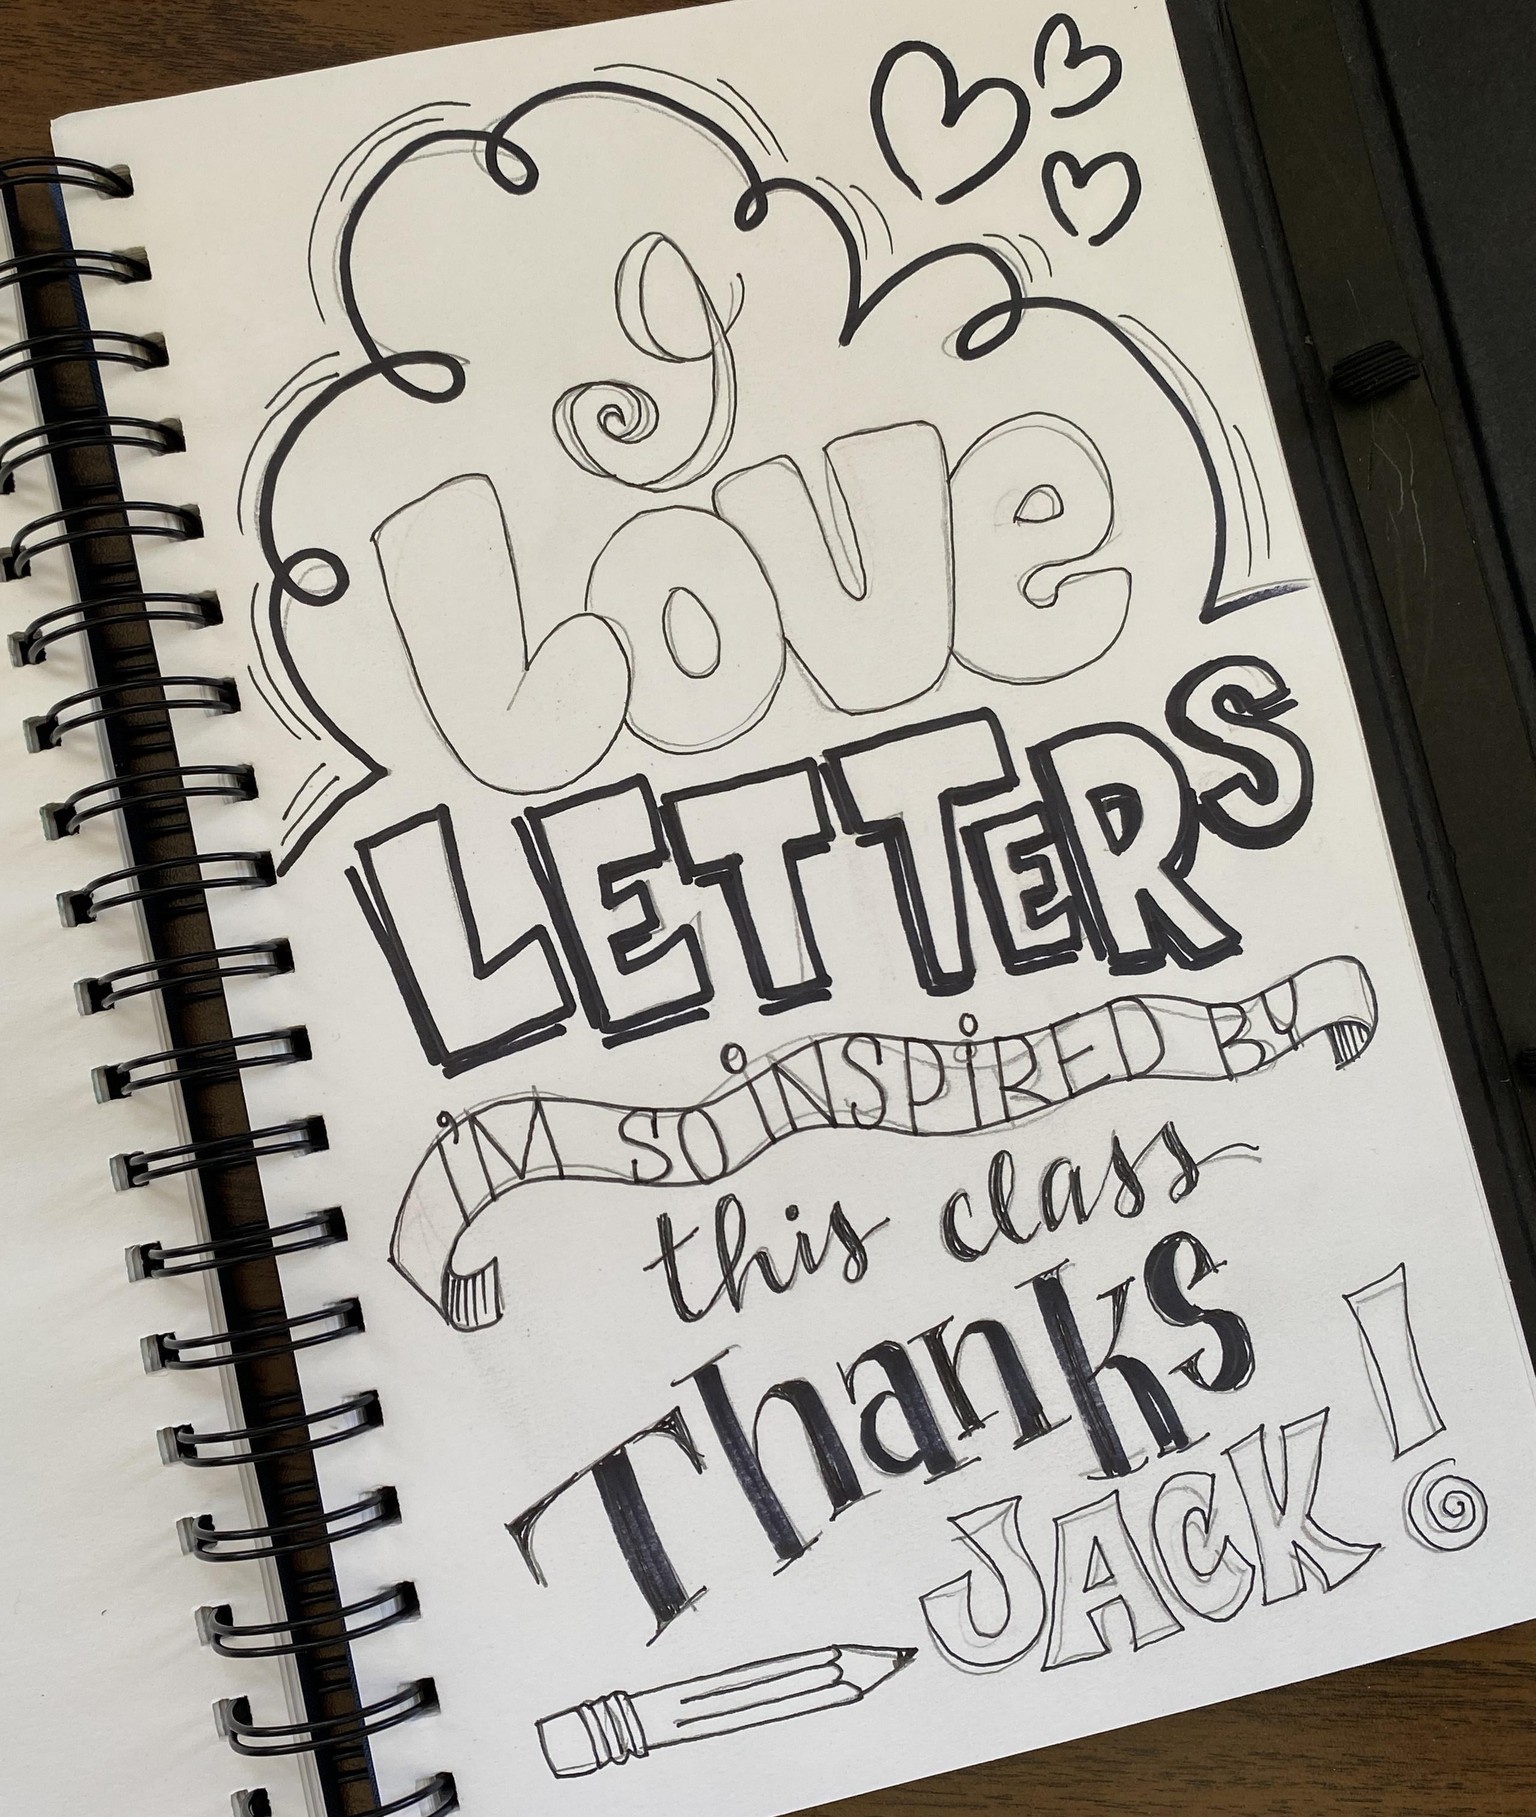 I
Love
LETTERS
I'M SO INSPIRED BY
this class
Thanks
JACK!